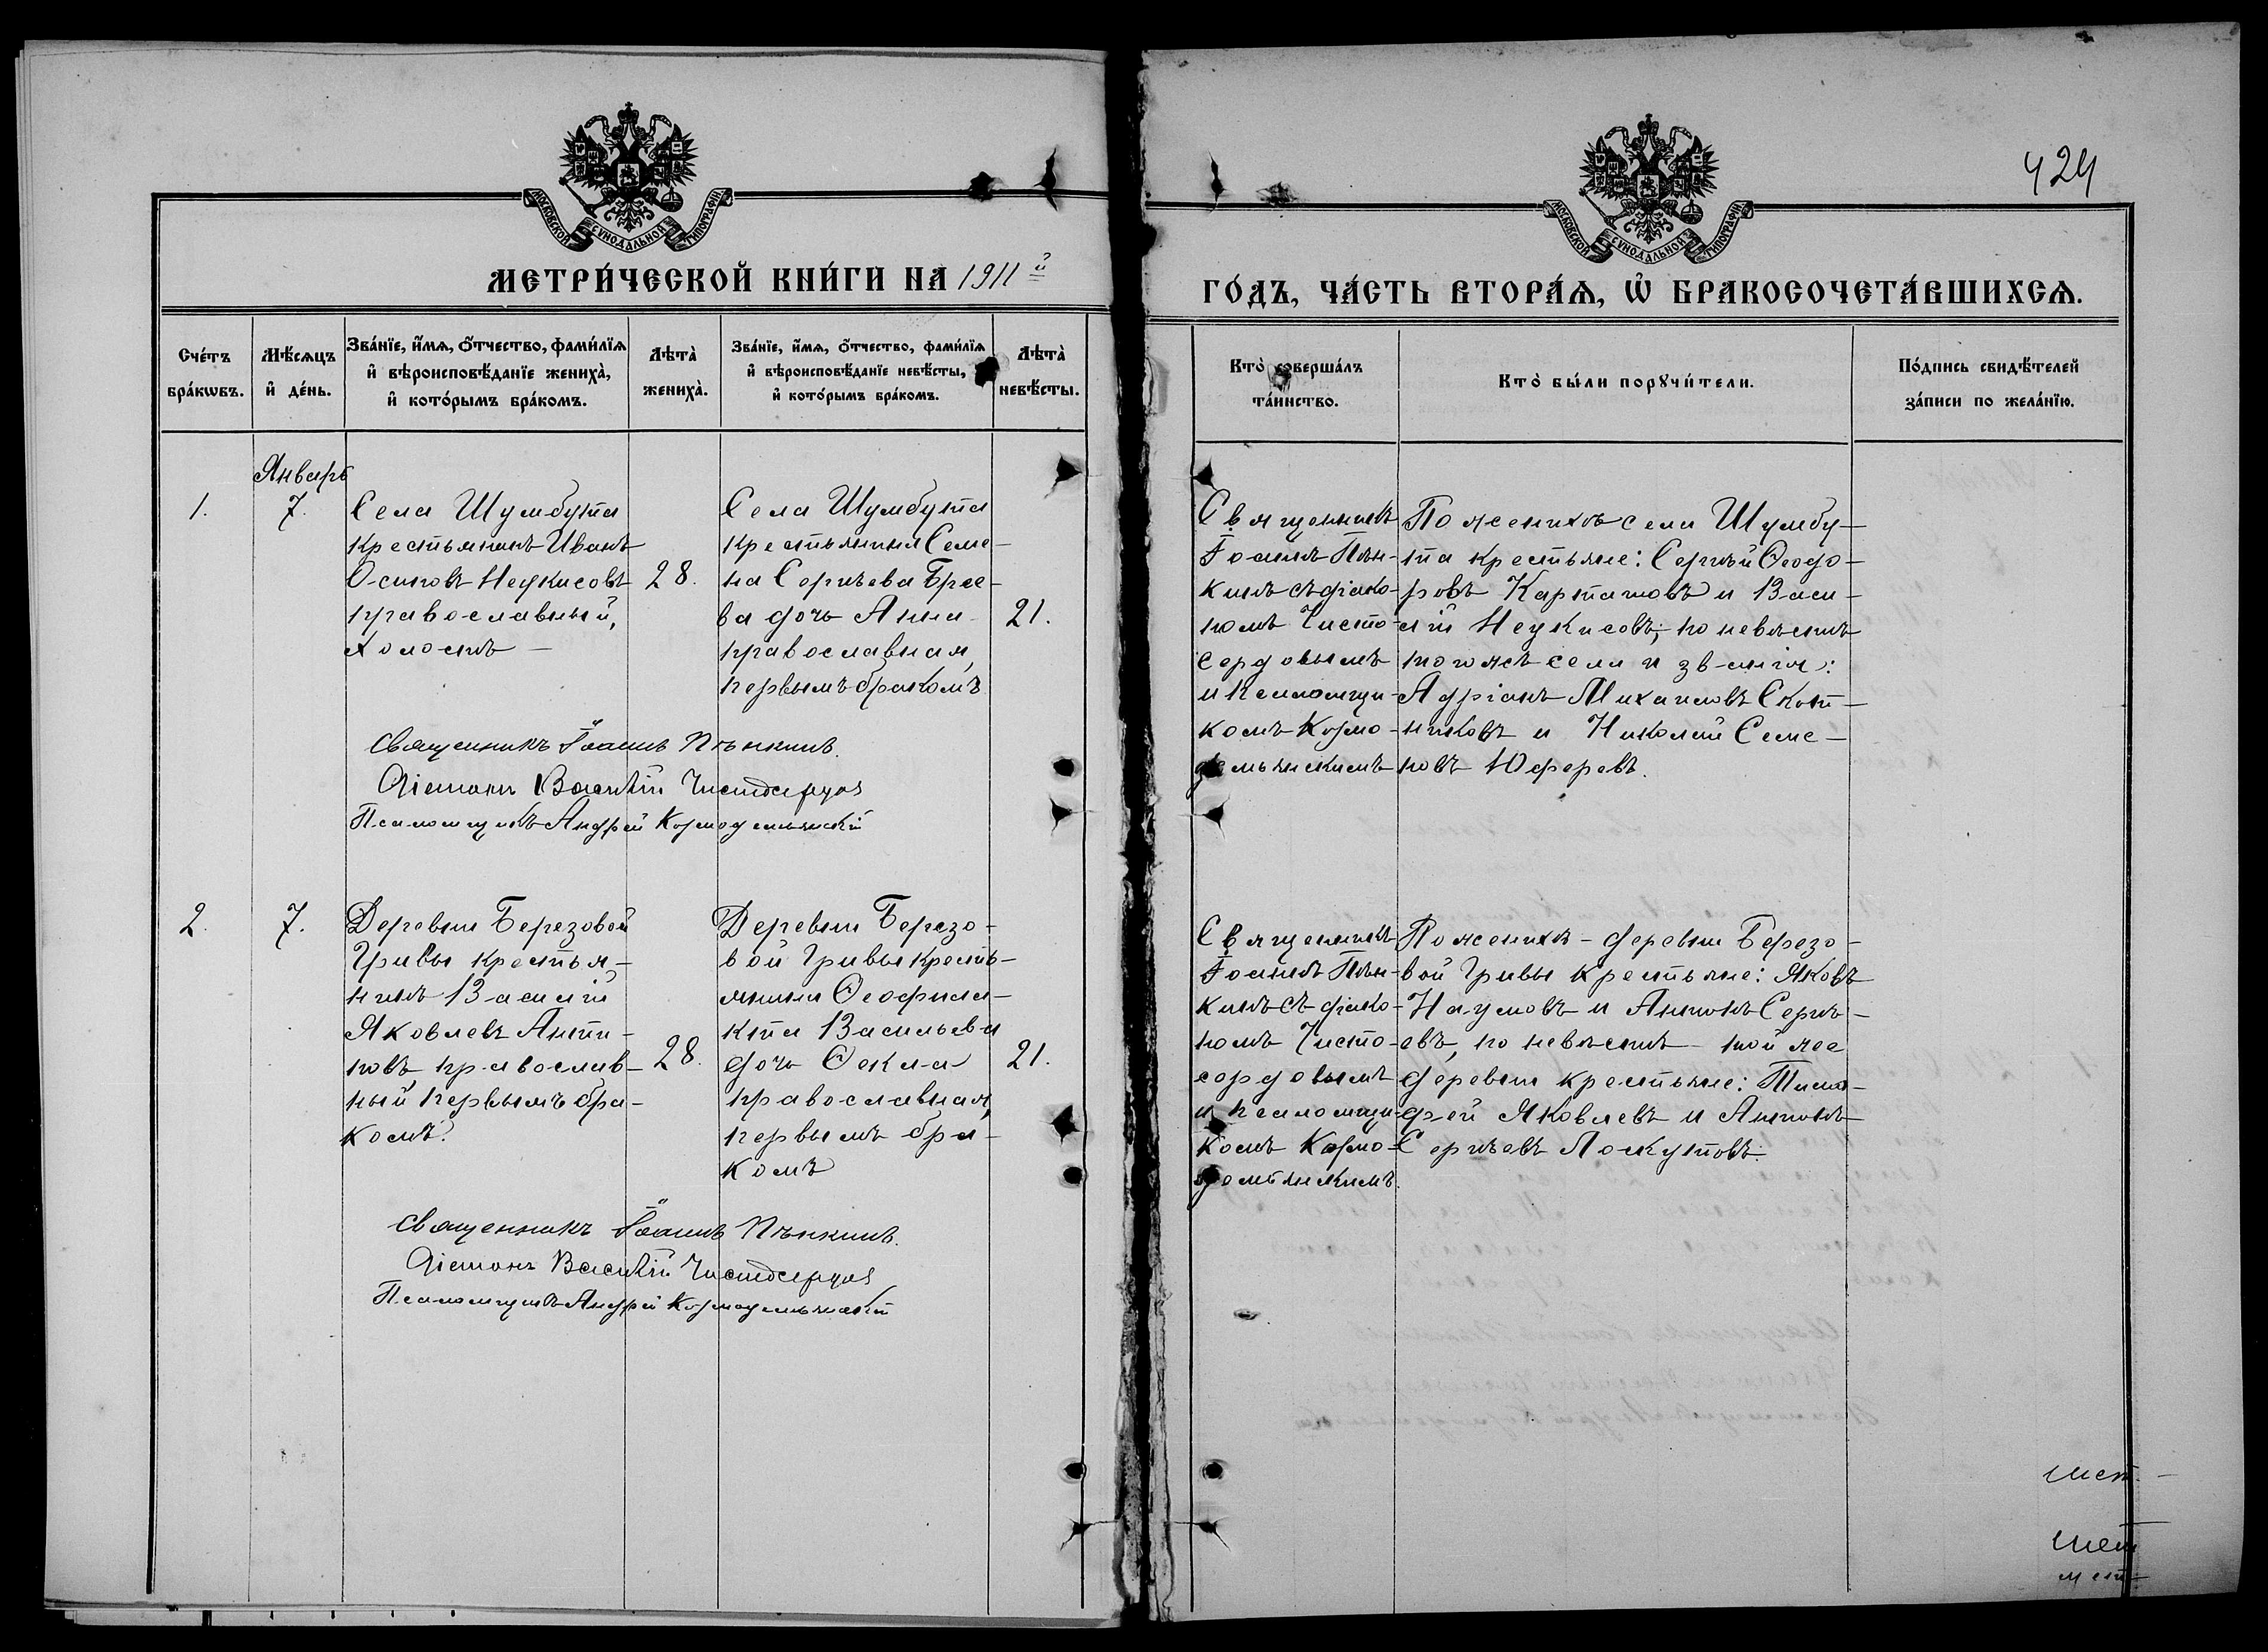 424
МОСКОВСКОЙ СѴНОДАЛЬНОЙ ТИПОГРАФІИ
МОСКОВСКОЙ СѴНОДАЛЬНОЙ ТИПОГРАФІИ
МЕТРИ́ЧЕСКОЙ КНИ́ГИ НА 1911й
ГО́ДЪ, ЧА́СТЬ ВТОРА́Ѧ, Ѡ҆ БРАКОСОЧЕТА́ВШИХСѦ.
Сче́тъ
бра́кѡвъ.
Мѣ́сѧцъ
и҆ де́нь.
Зва́нїе, и҆́мѧ, ѻ҆́тчество, фами́лїѧ
и҆ вѣроисповѣ́данїе жениха̀,
и҆ кото́рымъ бра́комъ.
Лѣта̀
жениха̀.
Зва́нїе, и҆́мѧ, ѻ҆́тчество, фами́лїѧ
и҆ вѣроисповѣ́данїе невѣ́сты,
и҆ кото́рымъ бра́комъ.
Лѣта̀
невѣ́сты.
Кто̀ соверша́лъ
та́инство.
Кто̀ бы́ли порꙋчи́тели.
По́дпись свидѣ́телей
за́писи по жела́нїю.
1.
Январь
7.
Села Шумбута
крестьянинъ Иванъ
Осиповъ Неукисовъ
православный,
холостъ —
28.
Села Шумбута
крестьянина Семе-
на Сергѣева Брее-
ва дочь Анна
православная,
первымъ бракомъ
21.
Священникъ
Іоаннъ Пѣн-
кинъ съ діако-
номъ Чисто-
сердовымъ
и псаломщи-
комъ Козмо-
демьянскимъ
По женихѣ села Шумбу-
та крестьяне: Сергѣй Ѳеодо-
ровъ Карташовъ и Васи-
лій Неукисовъ; по невѣстѣ
того же села и званія:
Адріанъ Михаиловъ Скот-
никовъ и Николай Семе-
новъ Юферевъ.
Священникъ Іоаннъ Пѣнкинъ.
Діаконъ Василій Чистосердов
Псаломщикъ Андрей Козмодемьянскій
2.
7.
Деревни Березовой
Гривы крестья-
нинъ Василій
Яковлевъ Анти-
повъ, православ-
ный первымъ бра-
комъ.
28.
Деревни Березо-
вой Гривы кресть-
янина Ѳеофила-
кта Васильева
дочь Ѳекла
православная,
первымъ бра-
комъ
21.
Священникъ
Іоаннъ Пѣн-
кинъ съ діако-
номъ Чисто-
сердовымъ
и псаломщи-
комъ Козмо-
демьянскимъ.
По женихѣ - деревни Березо-
вой Гривы крестьяне: Яковъ
Наумовъ и Антонъ Сергѣ-
евъ, по невѣстѣ - той же
деревни крестьяне: Тимо-
фей Яковлевъ и Антонъ
Сергѣевъ Лоскутовъ.
Священникъ Іоаннъ Пѣнкинъ.
Діаконъ Василій Чистосердов
Псаломщикъ Андрей Козмодемьянскій